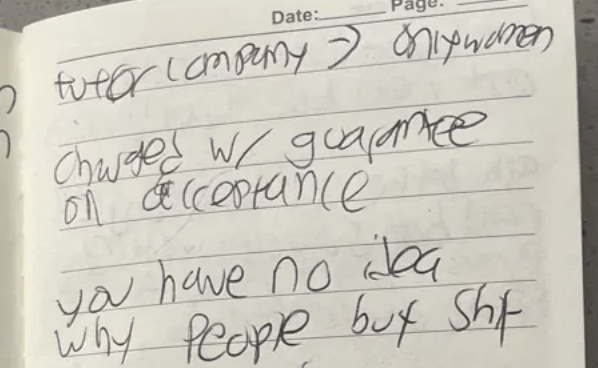 Date: Page.
tutor company → only women
charges w/ guarantee
on acceptance
you have no idea
why people buy shit